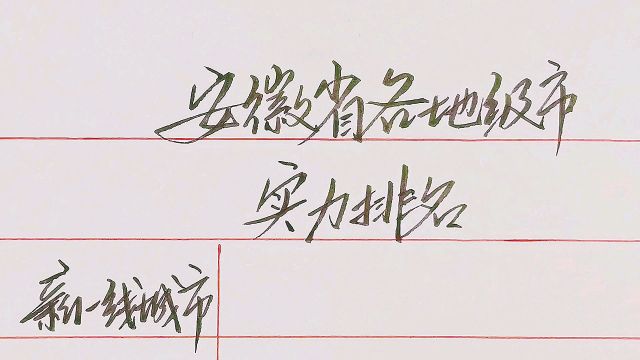 安徽省各地级市
实力排名
新一线城市